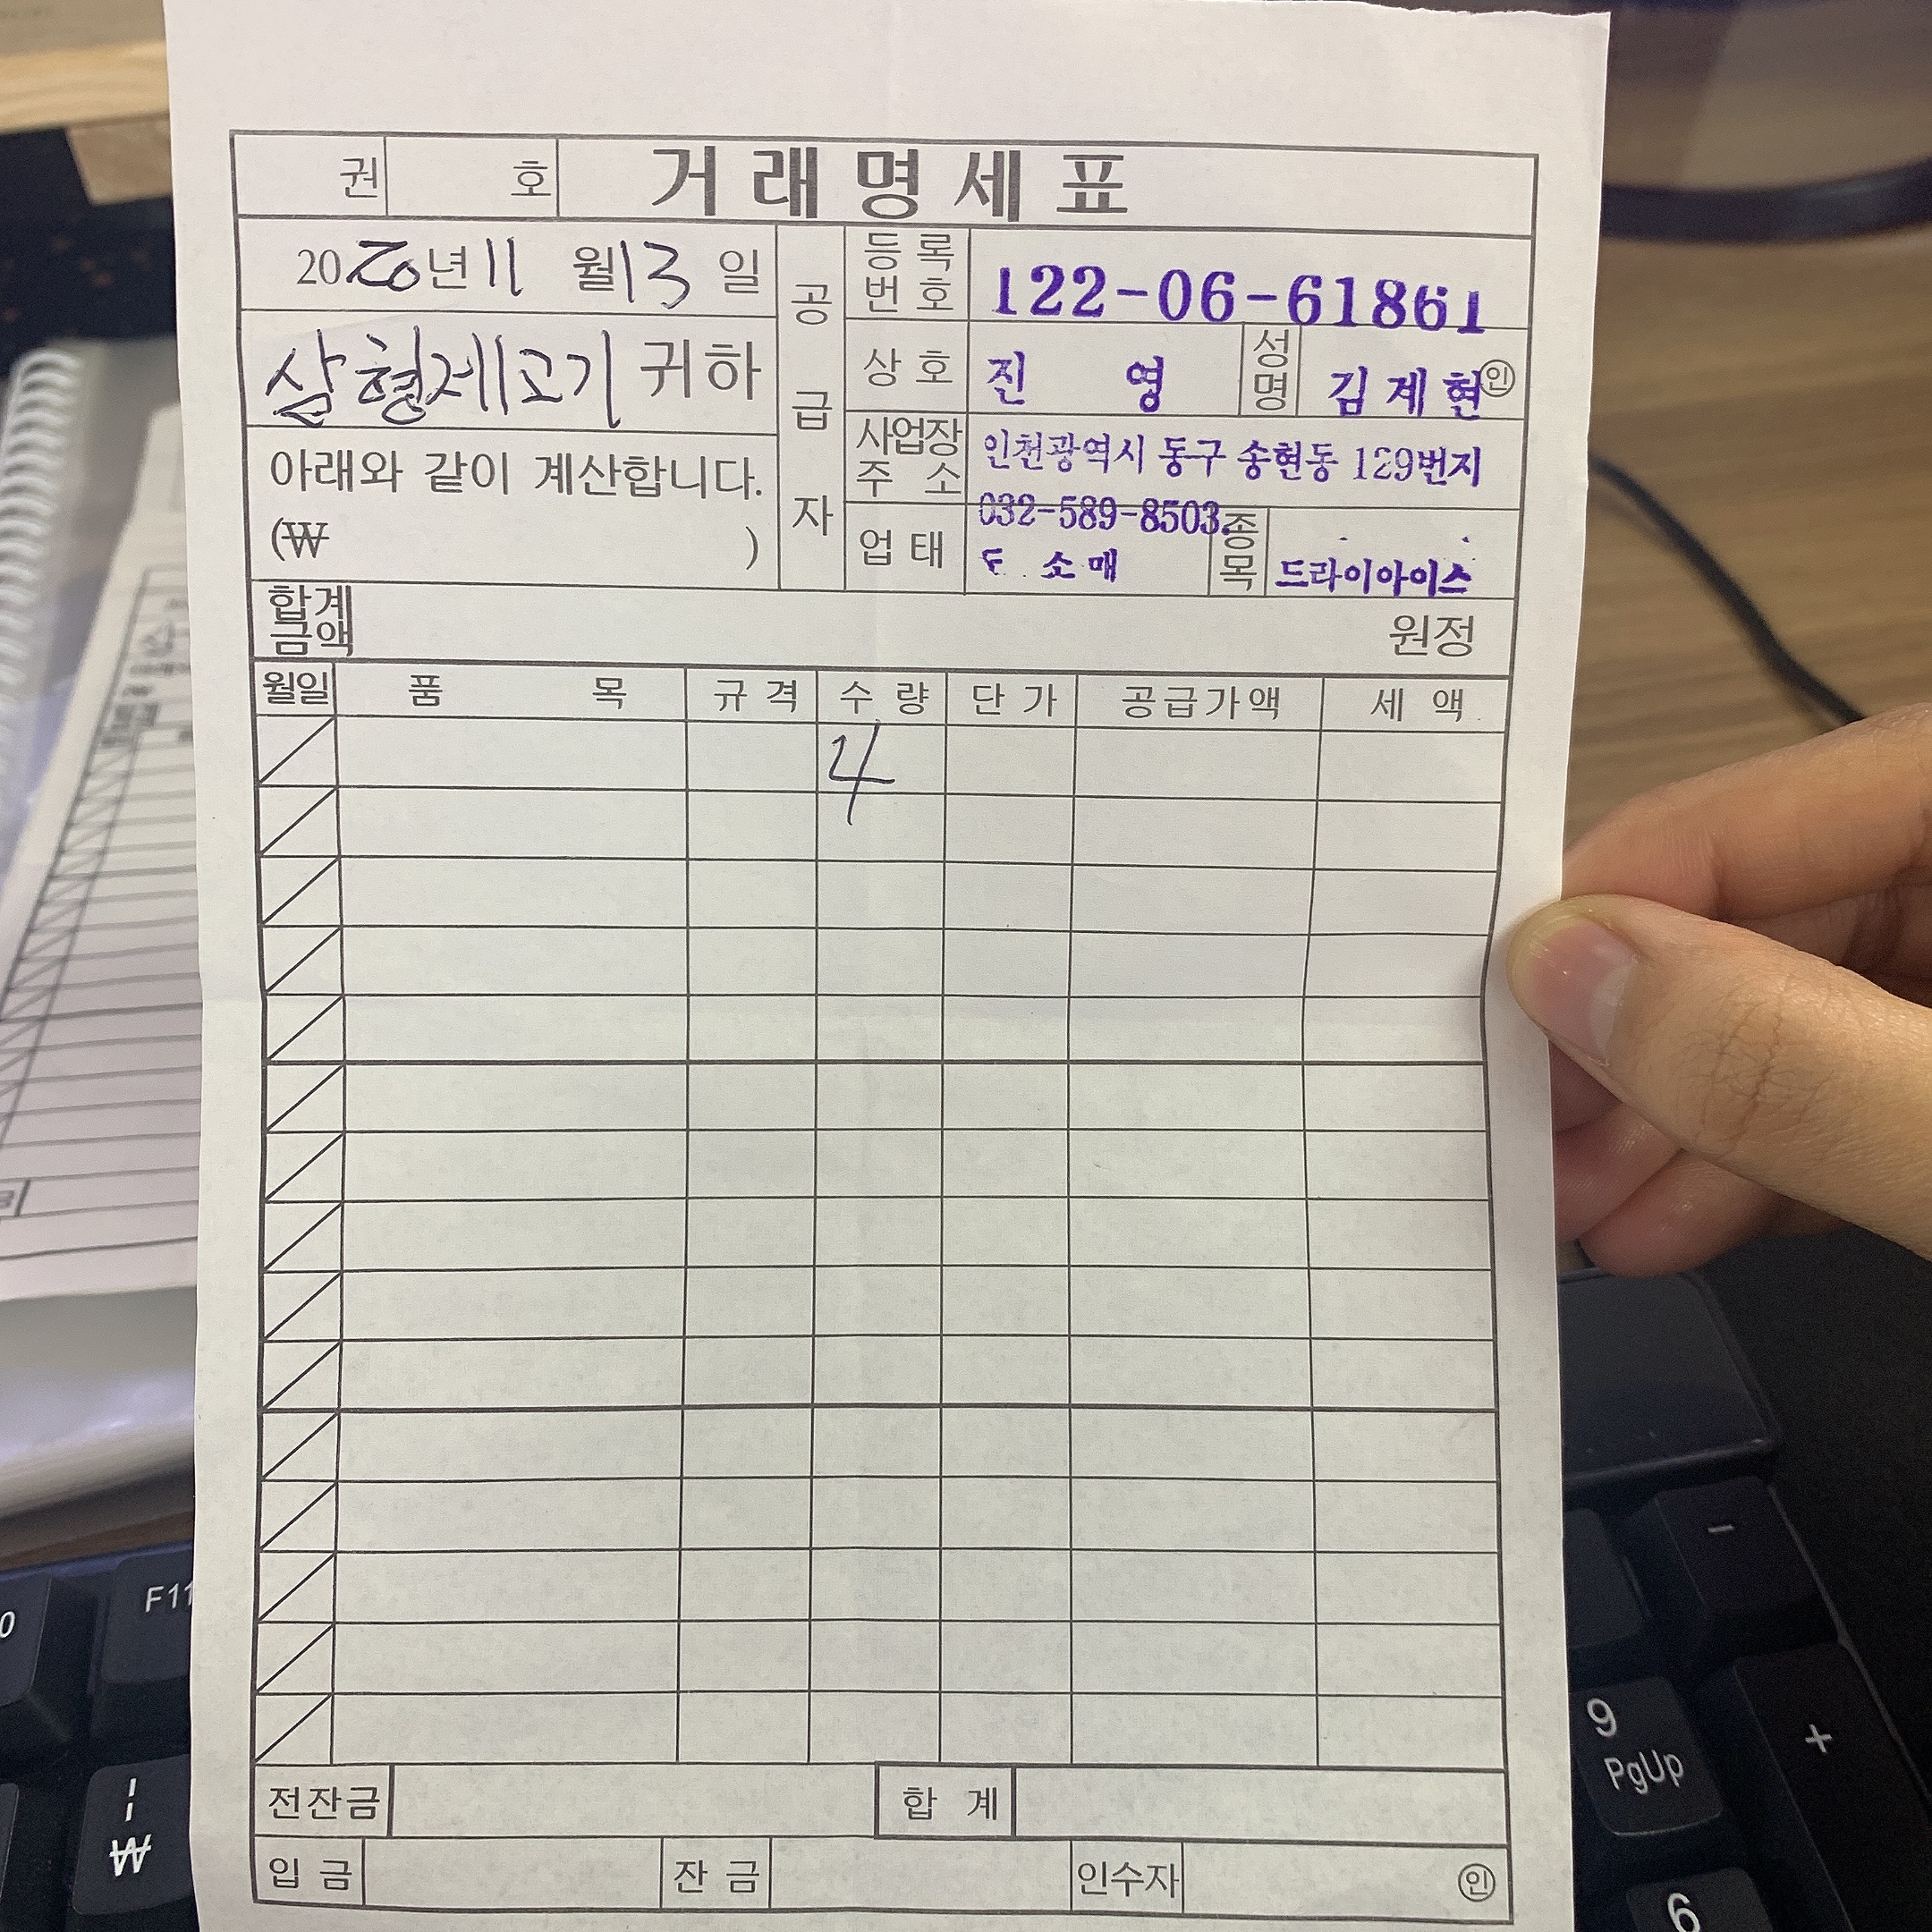 권 호 거래명세표
2020년 11월 13일
삼형제고기 귀하
아래와 같이 계산합니다.
(₩ )
공급자
등록번호 122-06-61861
상호 진영 성명 김계현 ㊞
사업장주소 인천광역시 동구 송현동 129번지
032-589-8503
업태 소매 종목 드라이아이스
합계금액 원정
월일 품목 규격 수량 단가 공급가액 세액
4
전잔금 합계
입금 잔금 인수자 ㊞
F11
0
₩
-
+
9
PgUp
6